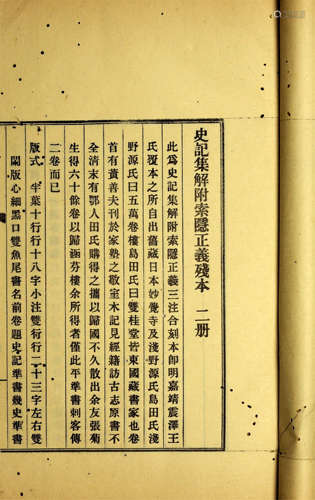 史記集解附索隱正義殘本 二册
此爲史記集解附索隱正義三注合刻本卽明嘉靖震澤王
氏覆本之所自出舊藏日本妙覺寺及淺野源氏島田氏淺
野源氏曰五萬卷樓島田氏曰雙桂堂皆東國藏書家也卷
首有黃善夫刊於家塾之敬室木記見經籍訪古志原書不
全淸末有鄂人田氏購得之攜以歸國不久散出余友張菊
生得六十餘卷以歸涵芬樓余所得者僅此平準書刺客傳
二卷而已
版式 半葉十行行十八字小注雙行行二十三字左右雙
闌版心細黑口雙魚尾書名前卷題史記準書幾史準書